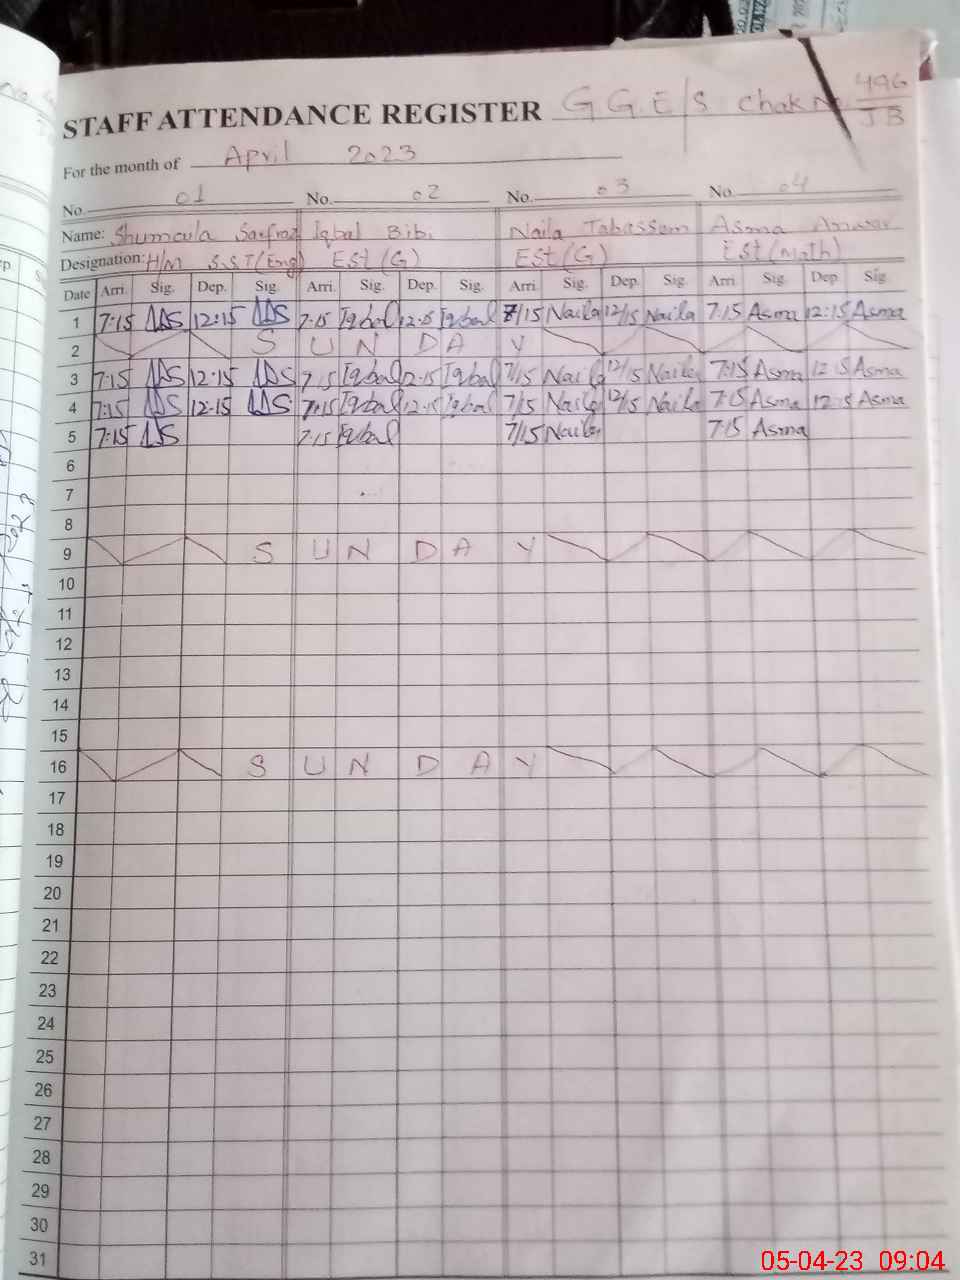 STAFF ATTENDANCE REGISTER G G.E/S Chak No. 496/JB
For the month of April 2023
No. 01 No. 02 No. 03 No. 04
Name: Shumaila Sarfraz Iqbal Bibi Naila Tabassem Asma Anwar
Designation: H/M S.S.T(Eng) ESt (G) ESt(G) ESt(Math)
Date Arri. Sig. Dep. Sig. Arri. Sig. Dep. Sig. Arri. Sig. Dep. Sig. Arri. Sig. Dep. Sig.
1 7:15 12:15 7:15 Iqbal 12:15 Iqbal 7/15 Naila 12/15 Naila 7:15 Asma 12:15 Asma
2 S U N D A Y
3 7:15 12:15 7:15 Iqbal 12:15 Iqbal 7/15 Naila 12/15 Naila 7:15 Asma 12:15 Asma
4 7:15 12:15 7:15 Iqbal 12:15 Iqbal 7/15 Naila 12/15 Naila 7:15 Asma 12:15 Asma
5 7:15 7:15 Iqbal 7/15 Naila 7:15 Asma
6
7
8
9 S U N D A Y
10
11
12
13
14
15
16 S U N D A Y
17
18
19
20
21
22
23
24
25
26
27
28
29
30
31
05-04-23 09:04